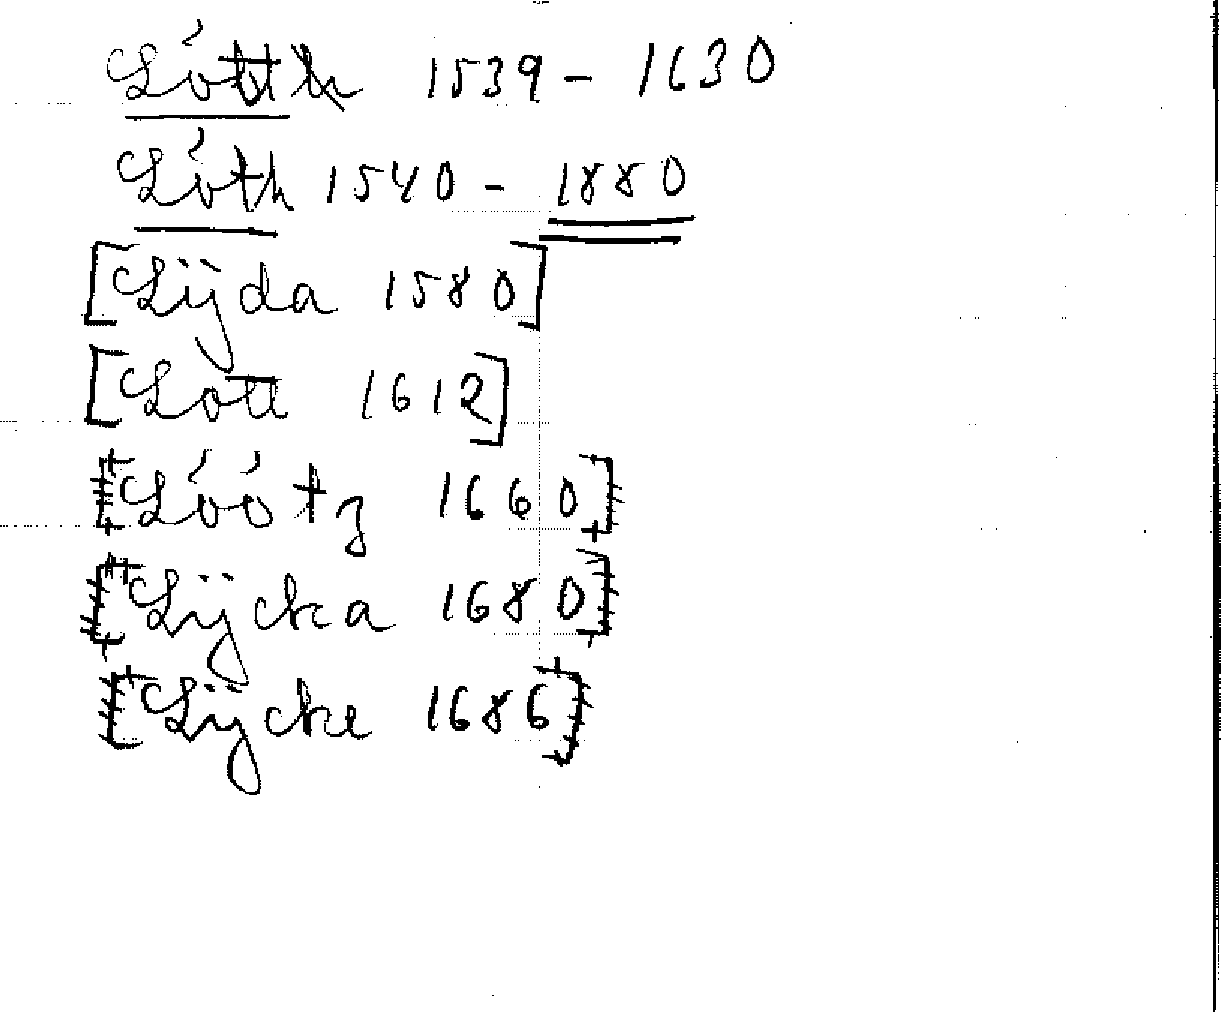 Lótth 1539 - 1630
Lóth 1540 - 1880
[Lijda 1580]
[Lott 1612]
[Lóótz 1660]
[Lÿcka 1680]
[Lÿcke 1686]